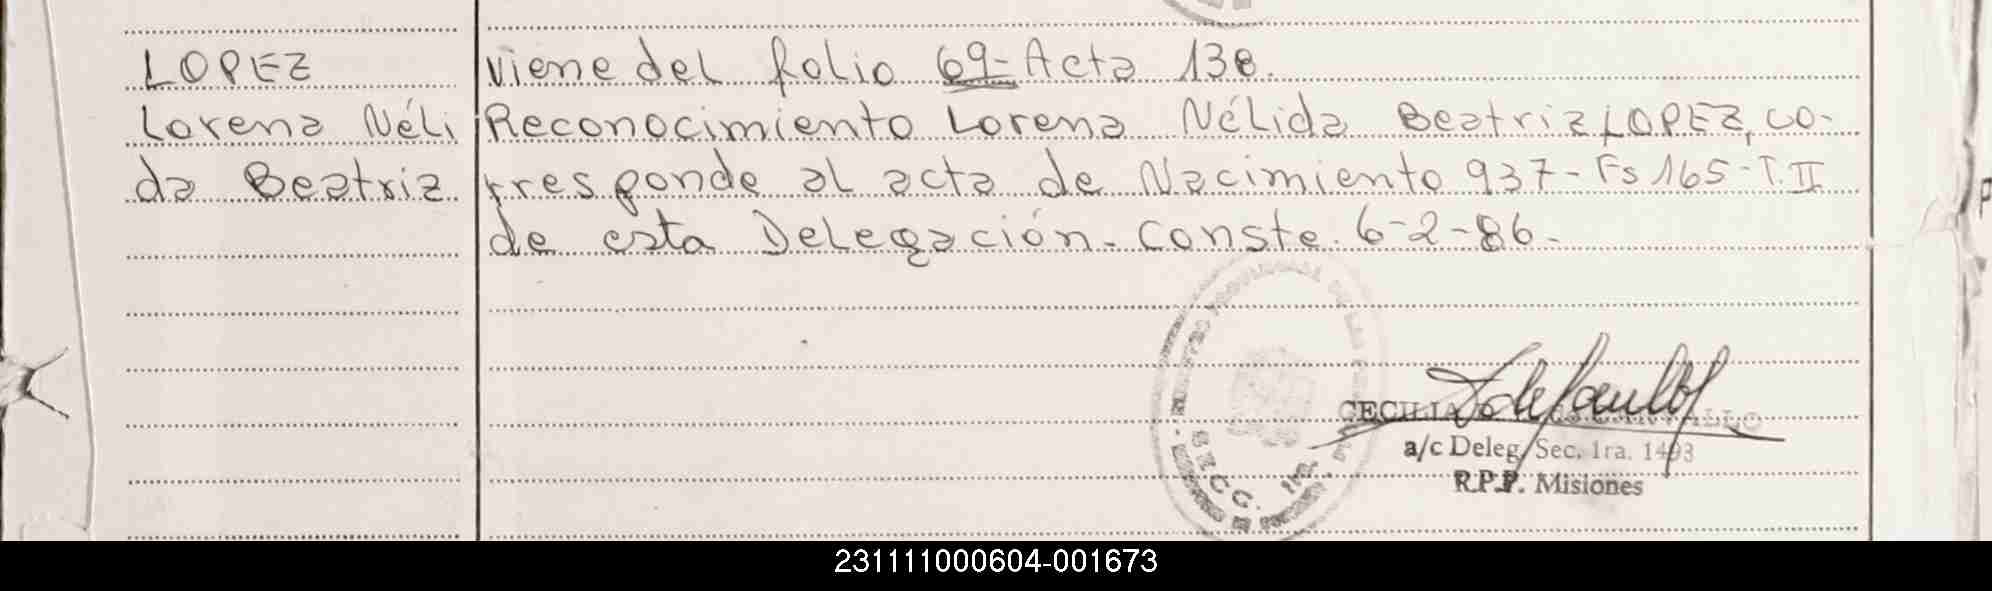 LOPEZ
Lorena Néli
da Beatriz
Viene del folio 69- Acta 138.
Reconocimiento Lorena Nélida Beatriz LOPEZ, co-
rresponde al acta de Nacimiento 937- Fs 165- T. II
de esta Delegación. Conste. 6-2-86-
CECILIA
a/c Deleg. Sec. 1ra. 1493
R.P.P. Misiones
231111000604-001673